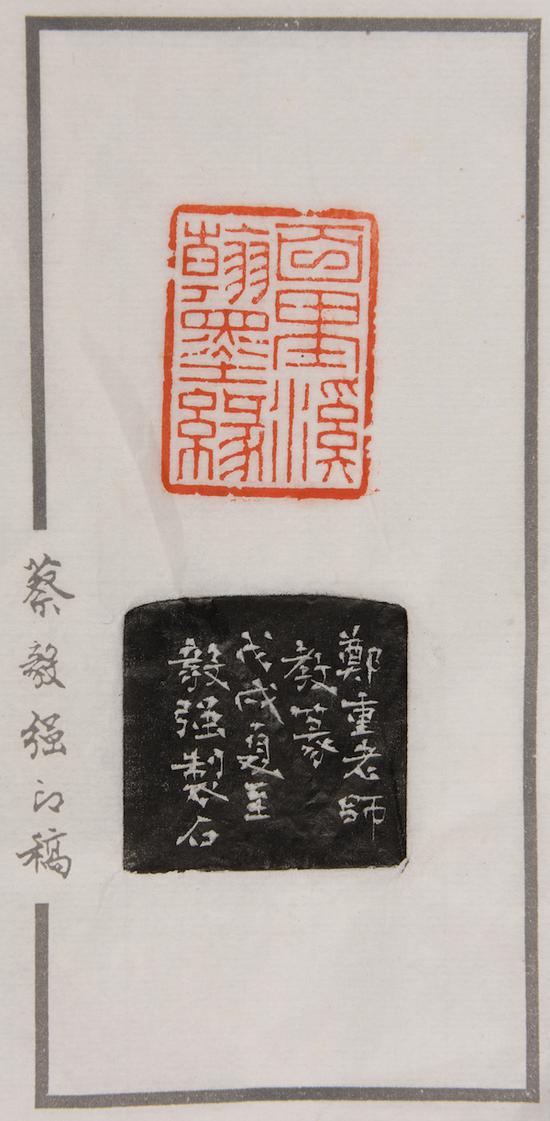 百里溪
翰墨緣
鄭重老師
教篆
戊戌夏至
毅强製石
蔡毅强印稿